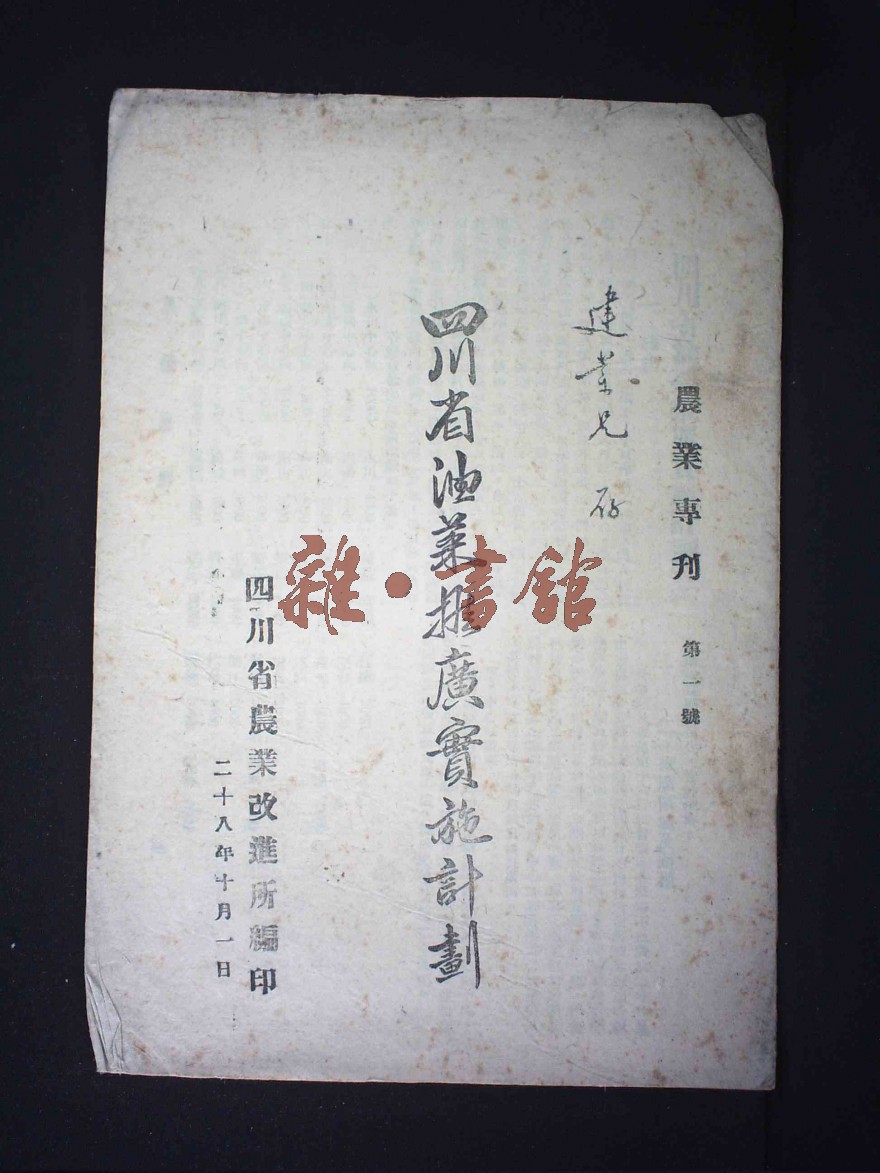 農業專刊 第一號
建業兄 存
四川省油菜推廣實施計劃
四川省農業改進所編印
二十八年十月一日
雜·書館